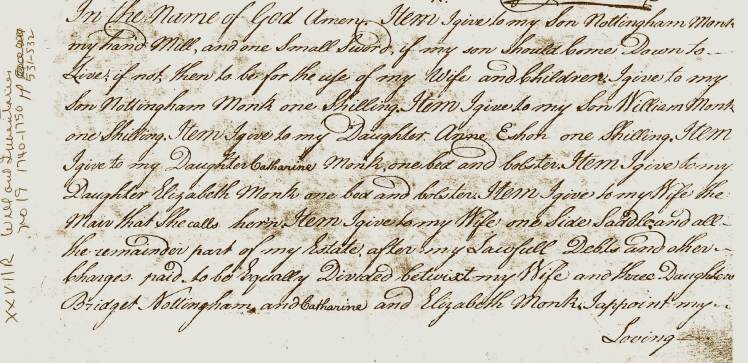 In the Name of God Amen. Item I give to my Son Nottingham Monk
my hand Mill, and one Small Sword, if my son should come Down to
Live; if not, then to be for the use of my Wife and Children; I give to my
Son Nottingham Monk one Shilling. Item I give to my Son William Monk
one Shilling. Item I give to my Daughter Anne Eshon one Shilling. Item
I give to my Daughter Catharine Monk, one bed and bolster. Item I give to my
Daughter Elizabeth Monk one bed and bolster. Item I give to my Wife the
Mair that She calls hern. Item I give to my Wife one Side Saddle, and all
the remainder part of my Estate, after my Lawfull Debts and other
Charges paid to be Equally Divided betwixt my Wife and three Daughters
Bridget Nottingham, and Catharine and Elizabeth Monk. I appoint my
Loving
XXVIIR Wills and Inventories
No 19 1740-1750 pp
531-532